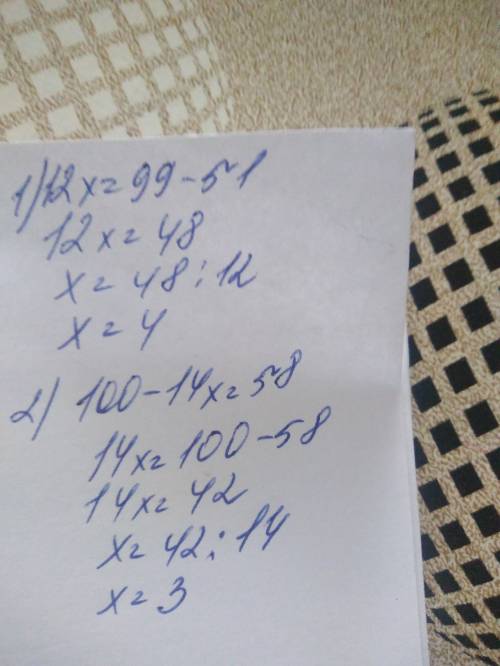 1) 12x=99-51
12x=48
x=48:12
x=4
2) 100-14x=58
14x=100-58
14x=42
x=42:14
x=3